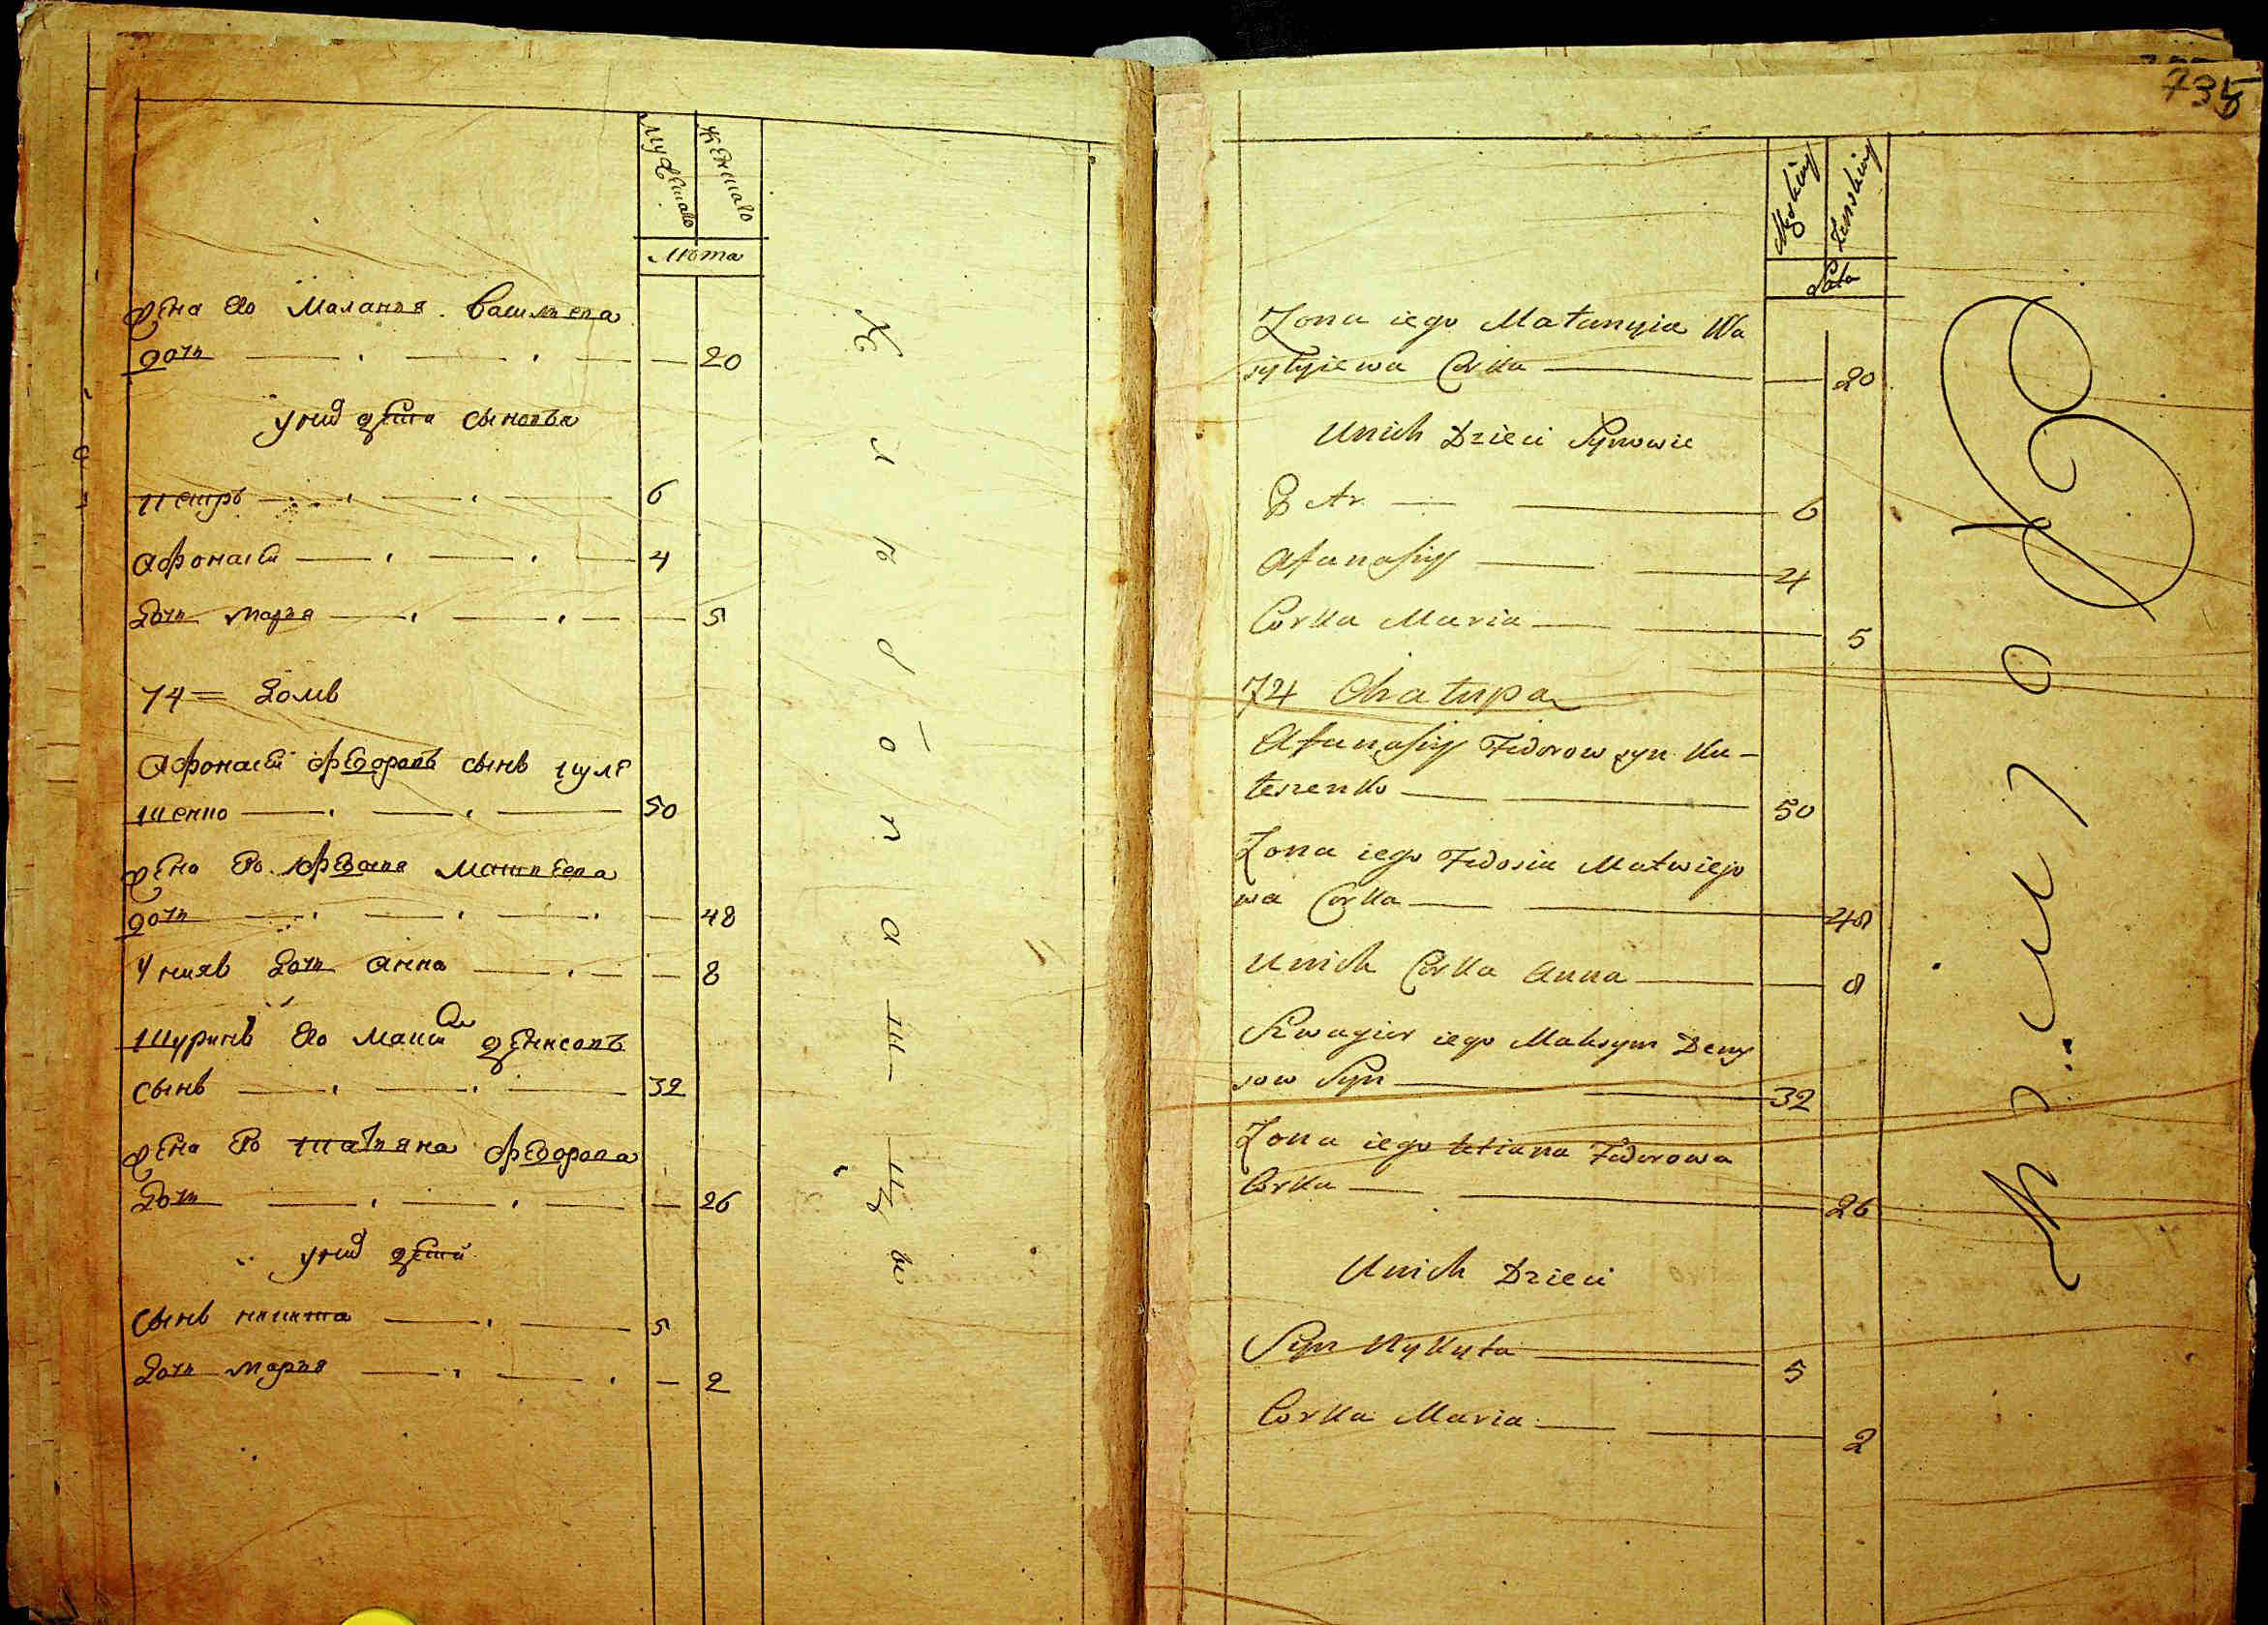 Мужеска
Женska
Лѣта
жена его Маланья Василева
дочь 20
у них дети сыновья
Петръ 6
Афонасей 4
Дочь Марья 5
74 = Домъ
Афонасей Федоровъ сынъ Куле
шенко 50
жена его Федосья Матвеева
дочь 48
У нихъ Дочь Анна 8
Шуринъ его Максим Денисовъ
сынъ 32
жена его Татьяна Федорова
Дочь 26
у них дети
Сынъ Никита 5
Дочь Марья 2
735
Męskiey
Zenskiey
Lata
Zona iego Małanyia Wa
syłyiewa Corka 20
Unich Dzieci Synowie
Petr 6
Afanasiy 4
Corka Maria 5
74 Chałupa
Afanasiy Fedorow syn Ku-
leszenko 50
Zona iego Fedosia Matwiejo
wa Corka 48
Unich Corka Anna 8
Szwagier iego Maksym Deny
sow Syn 32
Zona iego tetiana Fedorowa
Corka 26
Unich Dzieci
Syn Nykyta 5
Corka Maria 2